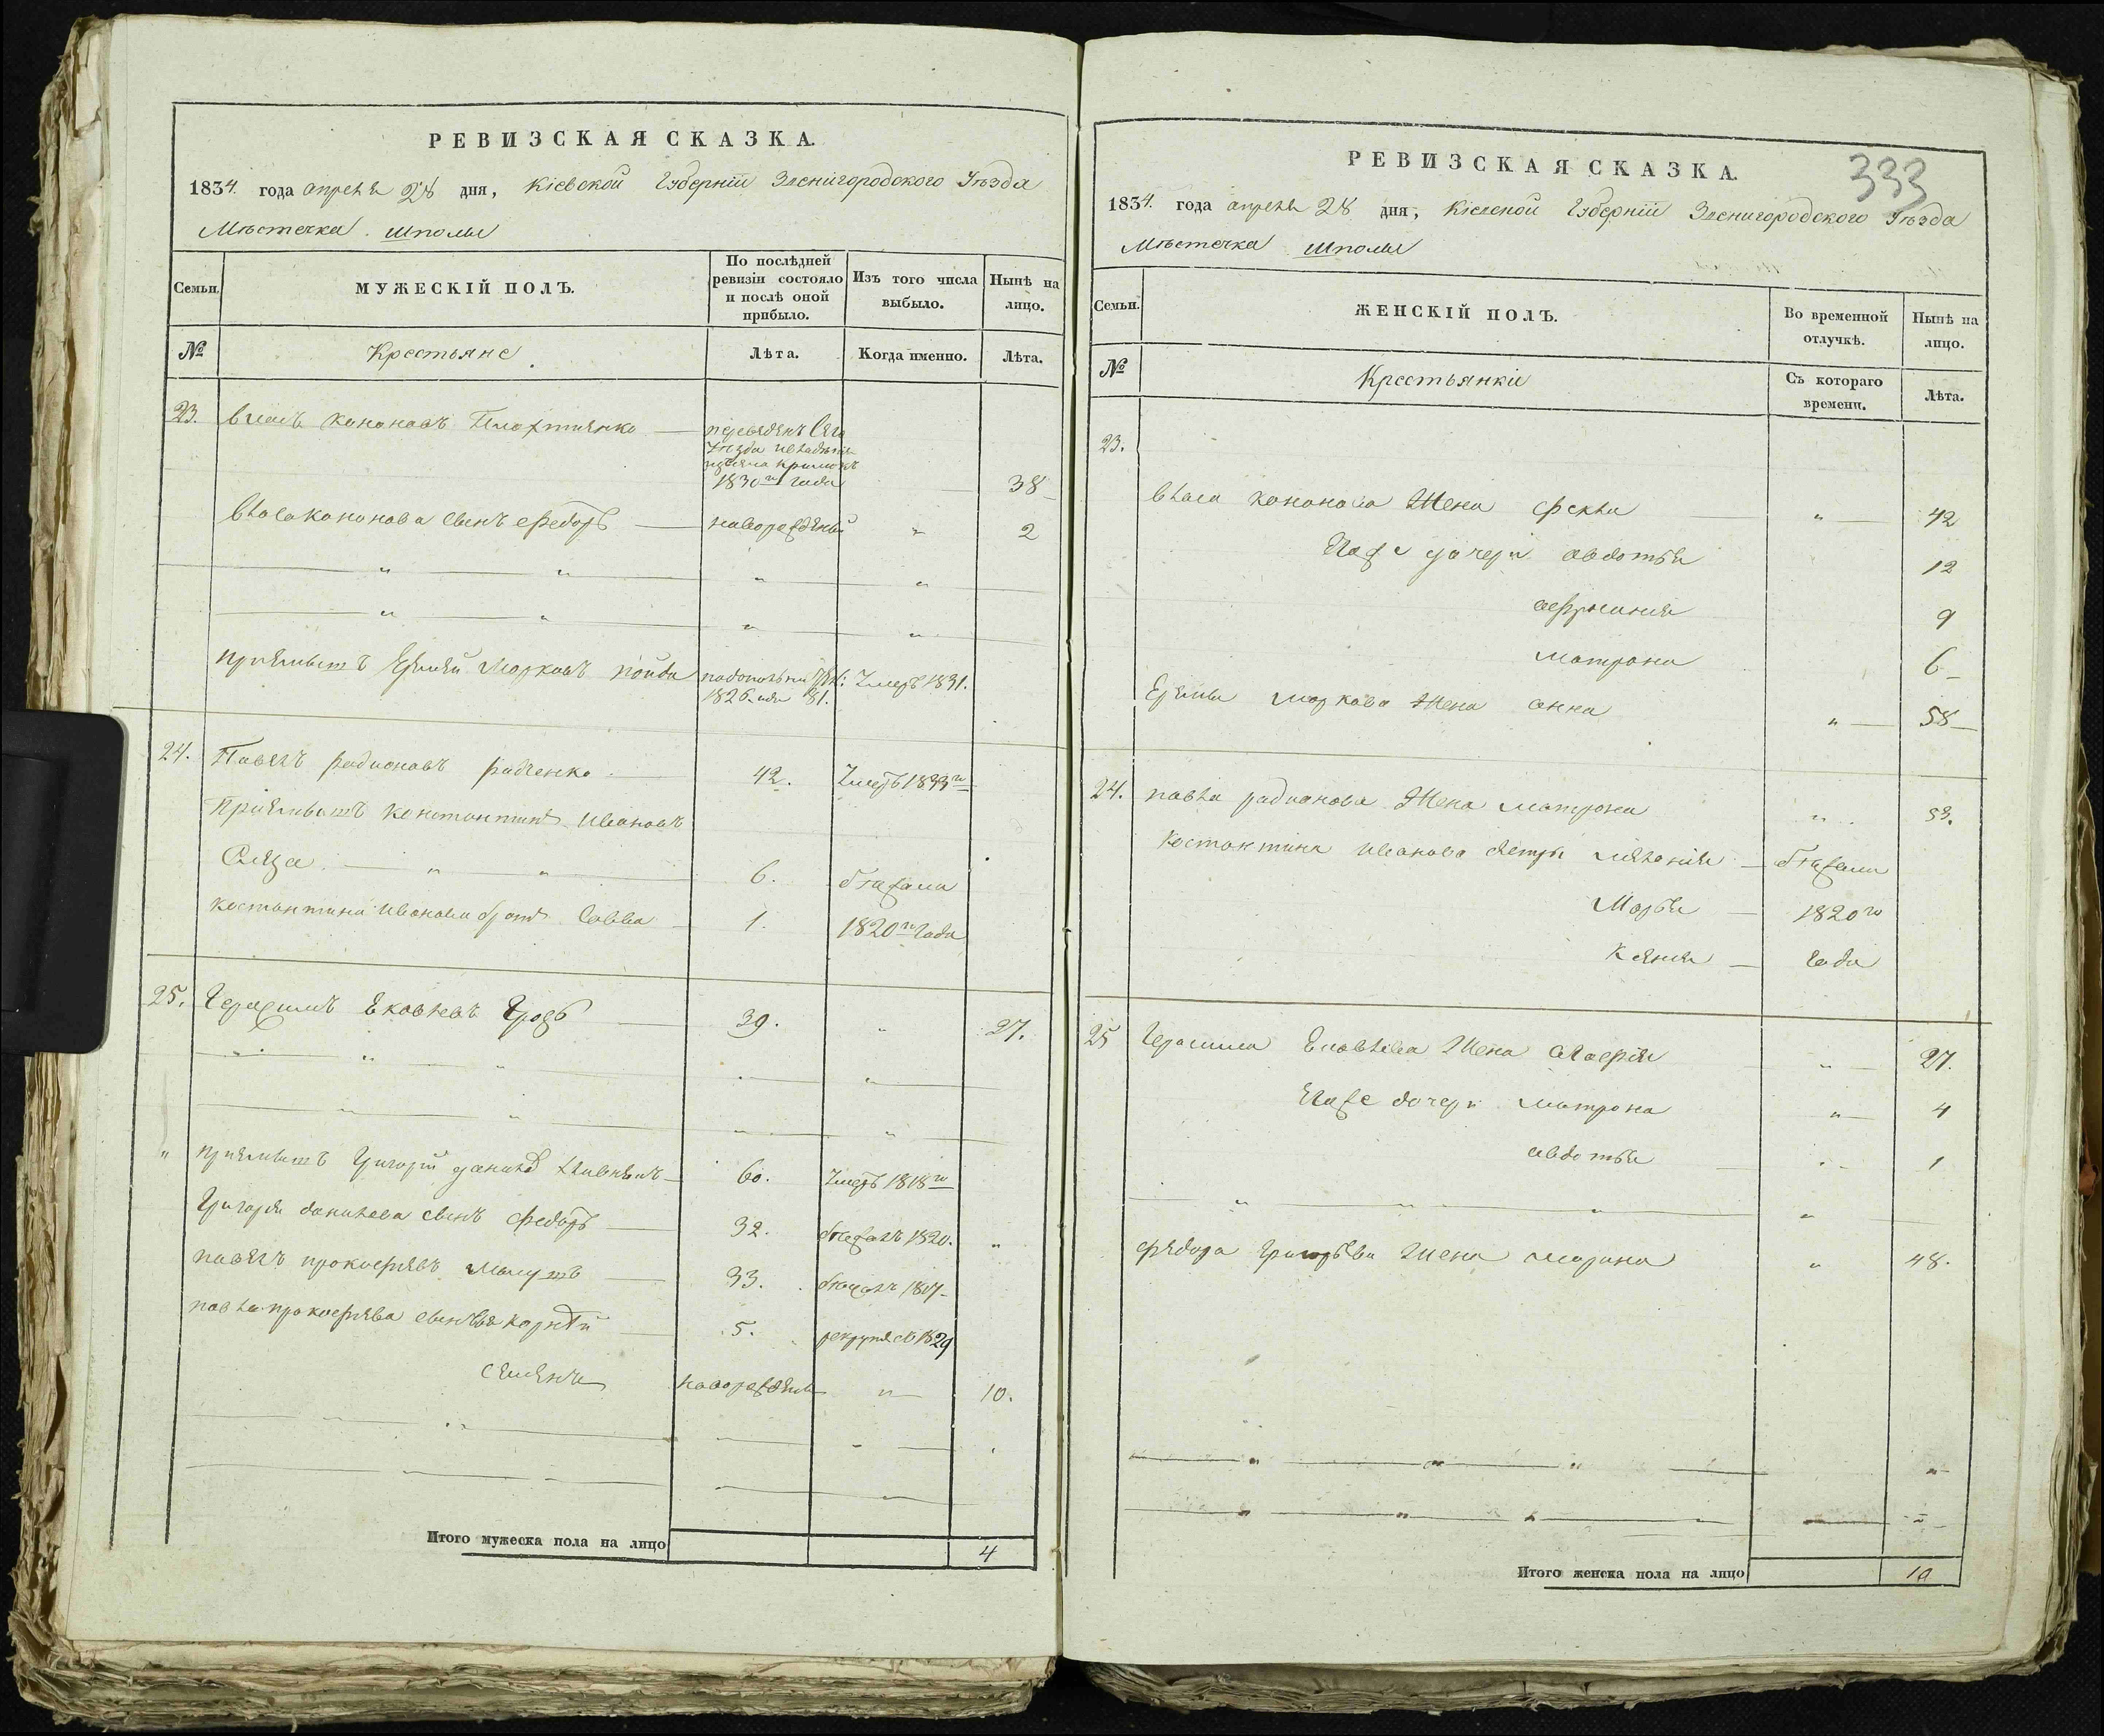 РЕВИЗСКАЯ СКАЗКА.
1834. года апреля 28 дня, Кіевской Губерніи Звенигородского Уѣзда
Мѣстечка Шполы
Семьи.
МУЖЕСКІЙ ПОЛЪ.
По послѣдней ревизіи состояло и послѣ оной прибыло.
Изъ того числа выбыло.
Нынѣ на лицо.
№
Крестьяне
Лѣта.
Когда именно.
Лѣта.
23. Власъ Кононовъ
1830го Года 38
Власа Кононова сынъ Федоръ новорожденый " 2
" " " "
" " " "
приемышъ Еремей Марковъ
1826 81. Умеръ 1831.
24. Павелъ Радионовъ Радченко 42. Умеръ 1833го
Приемышъ Константинъ Ивановъ
" " 6. бежали
Костантина Иванова братъ Савва 1. 1820го Года
25. Герасимъ Яковлевъ 39. " 27.
" " " " "
" " " "
" приемышъ Григорій Данилов 60. Умеръ 1818го
Григорія Данилева сынъ Федоръ 32. бежалъ 1820. "
Павелъ Прокофиевъ 33. бежалъ 1827
Павла Прокофиева сыновья Корней 5. 1829
Семенъ новорожденый " 10.
Итого мужеска пола на лицо 4
РЕВИЗСКАЯ СКАЗКА.
333
1834. года апреля 28 дня, Кіевской Губерніи Звенигородского Уѣзда
Мѣстечка Шполы
Семьи.
ЖЕНСКІЙ ПОЛЪ.
Во временной отлучкѣ.
Нынѣ на лицо.
№
Крестьянки
Съ котораго времени.
Лѣта.
23.
Власа Кононова Жена Фекла " 42
Ихже дочери Авдотья 12
Афросиния 9
Матрона 6
Еремы Маркова Жена Анна " 58
24. Павла Радионова Жена Матрона " 53.
Костантина Иванова сестры Мелания бежали
Марья 1820го
Ксения Года
25 Герасима Яковлева Жена Агафия " 27.
Ихже дочери Матрона " 4
Авдотья " 1
" " " "
Федора Григорьева Жена Марина " 48.
" " " "
" " " "
Итого женска пола на лицо 10